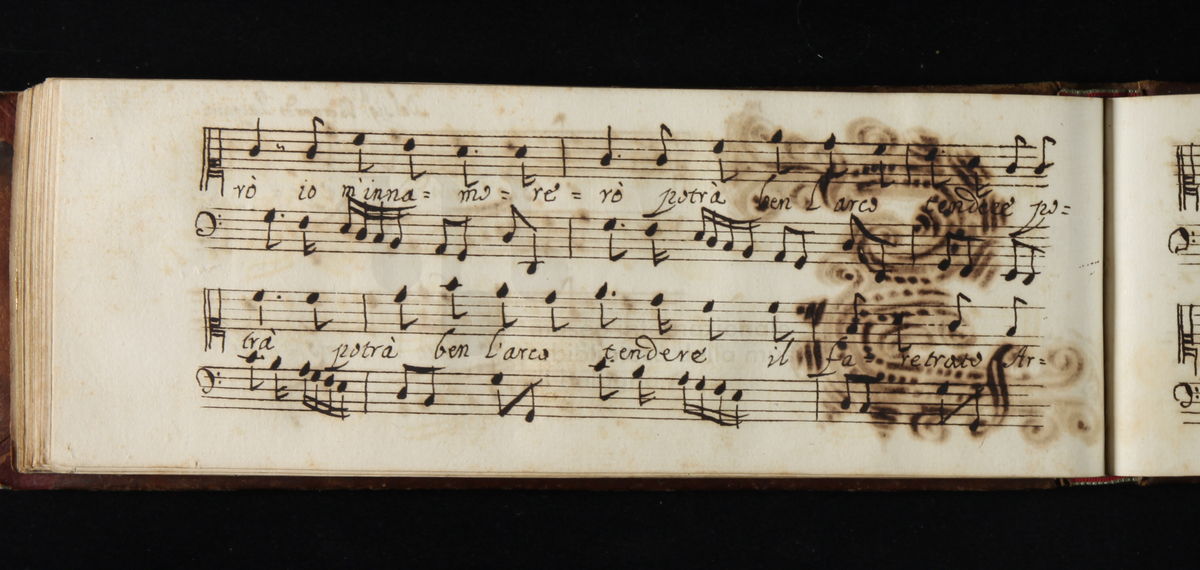 rò io m'inna= mo= re= rò potrà ben l'arco tendere po=
trà potrà ben l'arco tendere il fa= retrato Ar=